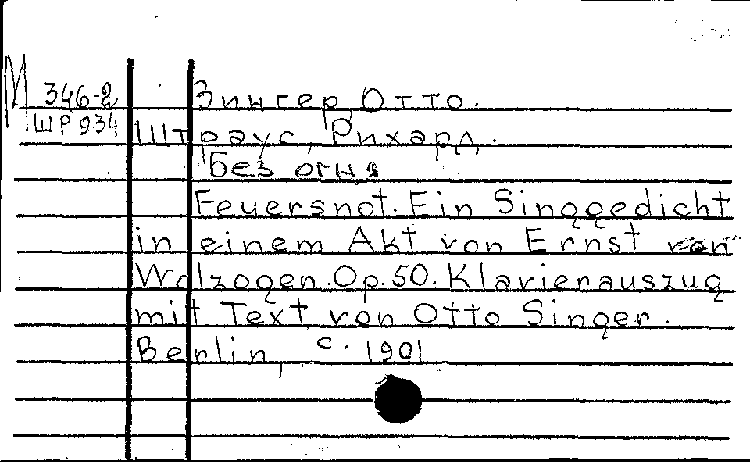 М 346-2 Зингер Отто.
ШР 934 Штраус, Рихард.
Без огня
Feuersnot. Ein Singgedicht
in einem Akt von Ernst von
Wolzogen. Op. 50. Klavierauszug
mit Text von Otto Singer.
Berlin, c. 1901